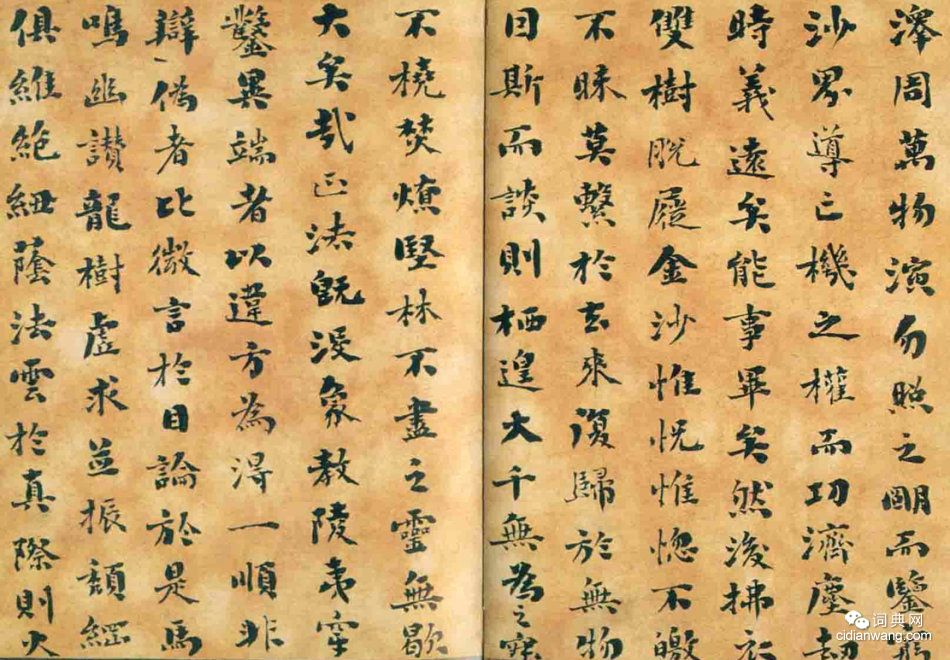 澤周萬物演勿照之明而鑒窮
沙界導亡機之權而功濟塵劫
時義遠矣能事畢矣然後拂衣
雙樹脫屣金沙惟怳惟惚不皦
不昧莫繫於去來復歸於無物
因斯而談則栖遑大千無為之寂
不橈焚燎堅林不盡之靈無歇
大矣哉正法既沒象教陵夷穿
鑿異端者以違方為得一順非
辯偽者比微言於目論於是馬
鳴幽讚龍樹虛求並振頹綱
俱維絕紐蔭法雲於真際則火
词典网
cidianwang.com